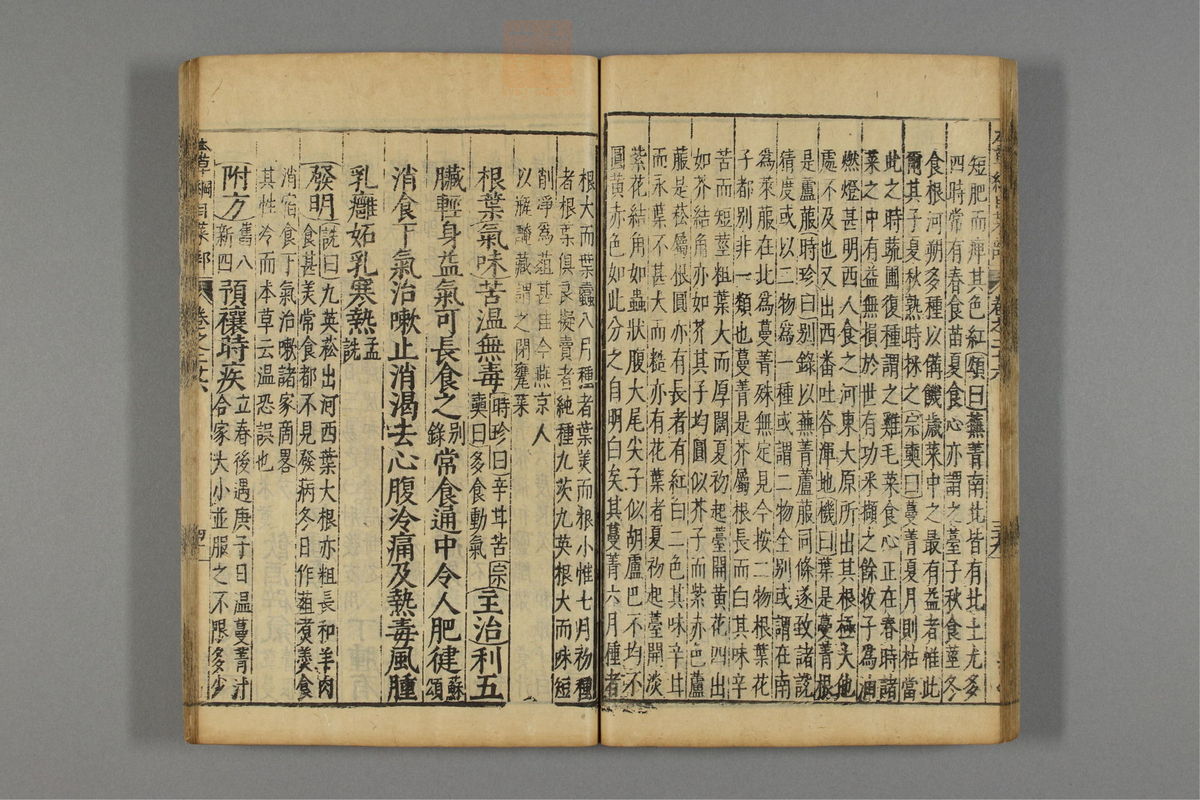 短肥而痺其色紅頌曰蕪菁南北皆有北土尤多
四時常有春食苗夏食心亦謂之薹子秋食莖冬
食根河朔多種以備饑歲菜中之最有益者惟此
爾其子夏秋熟時采之宗奭曰蔓菁夏月則枯當
此之時蔬圃復種謂之雞毛菜食心正在春時諸
菜之中有益無損於世有功采擷之餘收子為油
燃燈甚明西人食之河東大原所出其根極大他
處不及也又出西番吐谷渾地機曰葉是蔓菁根
是蘆菔時珍曰別錄以蕪菁蘆菔同條遂致諸說
猜度或以二物為一種或謂二物全別或謂在南
為萊菔在北為蔓菁殊無定見今按二物根葉花
子都別非一類也蔓菁是芥屬根長而白其味辛
苦而短莖粗葉大而厚闊夏初起薹開黃花四出
如芥結角亦如芥其子均圓似芥子而紫赤色蘆
菔是菘屬根圓亦有長者有紅白二色其味辛甘
而永葉不甚大而糙亦有花葉者夏初起薹開淡
紫花結角如蟲狀腹大尾尖子似胡盧巴不均不
圓黃赤色如此分之自明白矣其蔓菁六月種者
根大而葉蠹八月種者葉美而根小惟七月初種
者根葉俱良擬賣者純種九英九英根大而味短
削淨為菹甚佳今燕京人
以瓶醃藏謂之閉甕菜
根葉氣味苦溫無毒時珍曰辛甘苦宗
奭曰多食動氣主治利五
臟輕身益氣可長食之別
錄常食通中令人肥健蘇
頌
消食下氣治嗽止消渴去心腹冷痛及熱毒風腫
乳癰妬乳寒熱孟
詵
發明詵曰九英菘出河西葉大根亦粗長和羊肉
食甚美常食都不見發病冬日作菹煮羹食
消宿食下氣治嗽諸家商畧
其性冷而本草云溫恐誤也
附方舊八
新四預禳時疾立春後遇庚子日溫蔓菁汁
合家大小並服之不限多少
本草綱目菜部 卷之二十六